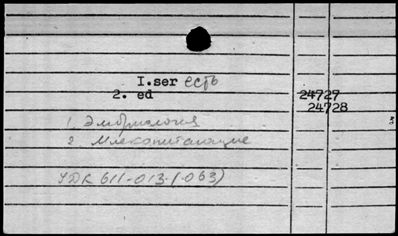 I.ser есть
2. ed 24727
24728
1 Эмбриология
2 Млекопитающие
УДК 611-013(063)